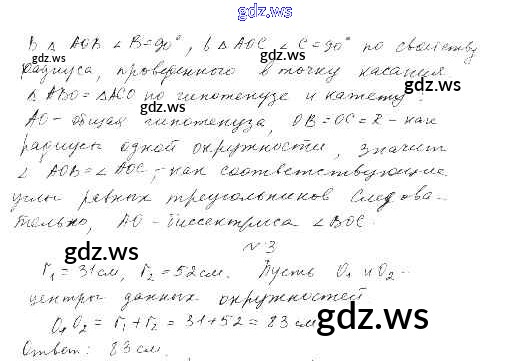 gdz.ws
В △ AOB ∠B=90°, в △ AOC ∠C=90° по свойству
радиуса, проведенного в точку касания
gdz.ws
△ ABO = △ACO по гипотенузе и катету:
gdz.ws
AO - общая гипотенуза, OB=OC=R - как
радиусы одной окружности, значит
∠ AOB = ∠ AOC, - как соответствующие
углы равных треугольников Следова-
тельно, AO - биссектриса ∠BOC.
gdz.ws
№3
gdz.ws
r₁ = 31см, r₂ = 52см. Пусть O₁ и O₂ -
центры данных окружностей
O₁O₂ = r₁+r₂ = 31+52 = 83см
gdz.ws
Ответ: 83см.
gdz.ws